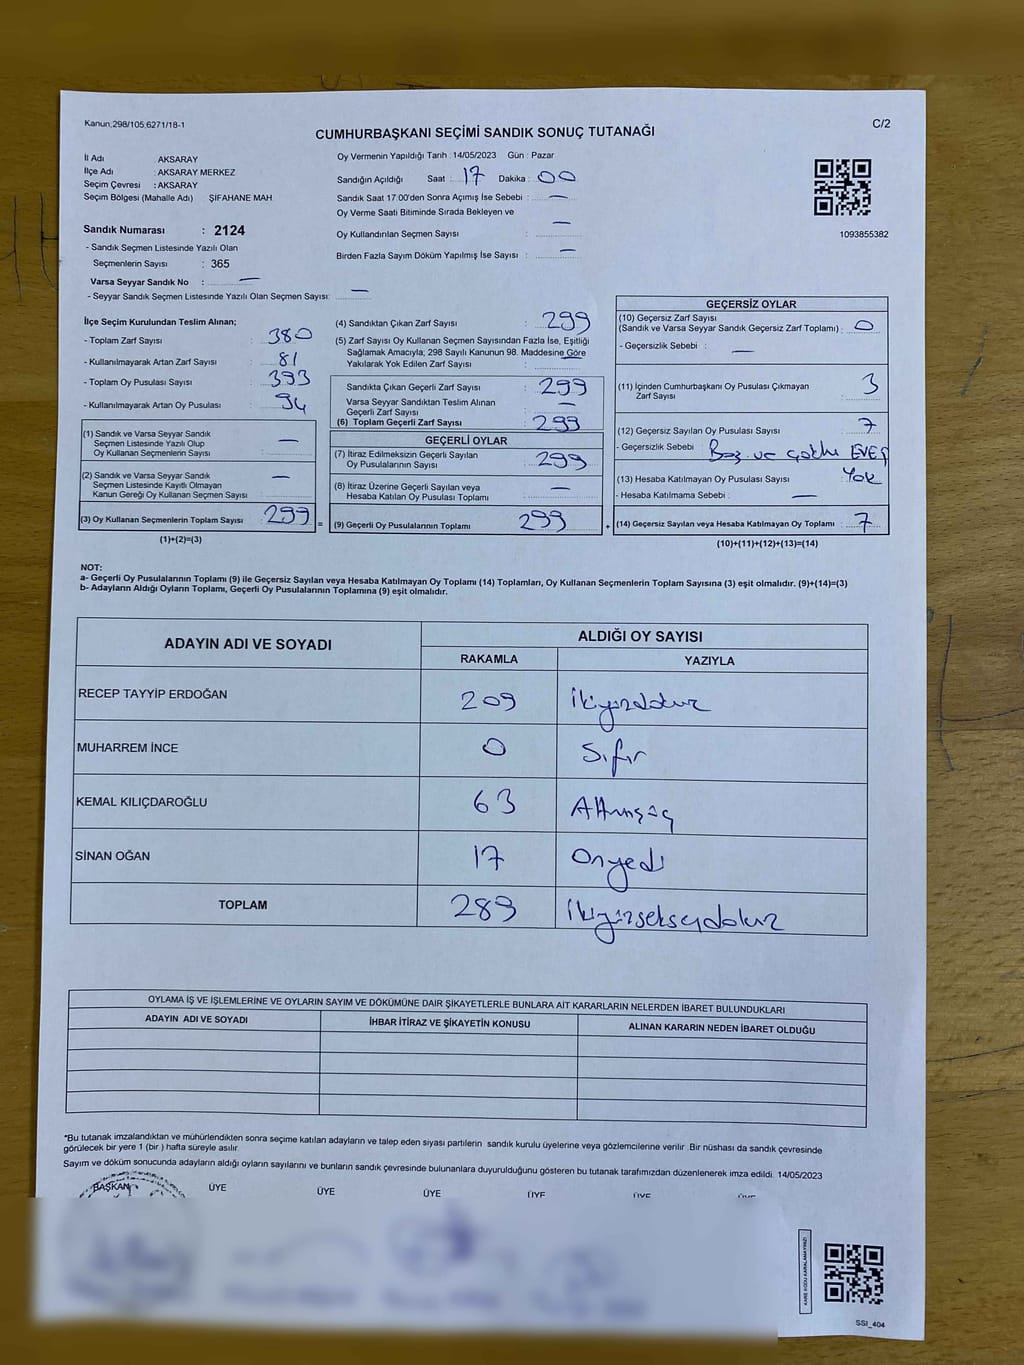 Kanun,298/105,6271/18-1
C/2
CUMHURBAŞKANI SEÇİMİ SANDIK SONUÇ TUTANAĞI
İl Adı AKSARAY
İlçe Adı : AKSARAY MERKEZ
Seçim Çevresi : AKSARAY
Seçim Bölgesi (Mahalle Adı) ŞİFAHANE MAH
Sandık Numarası : 2124
- Sandık Seçmen Listesinde Yazılı Olan
Seçmenlerin Sayısı : 365
Varsa Seyyar Sandık No : —
- Seyyar Sandık Seçmen Listesinde Yazılı Olan Seçmen Sayısı: —
Oy Vermenin Yapıldığı Tarih : 14/05/2023 Gün : Pazar
Sandığın Açıldığı Saat : 17 Dakika : 00
Sandık Saat 17:00'den Sonra Açımış İse Sebebi : —
Oy Verme Saati Bitiminde Sırada Bekleyen ve
Oy Kullandırılan Seçmen Sayısı : —
Birden Fazla Sayım Döküm Yapılmış İse Sayısı : —
1093855382
İlçe Seçim Kurulundan Teslim Alınan;
- Toplam Zarf Sayısı : 380
- Kullanılmayarak Artan Zarf Sayısı : 81
- Toplam Oy Pusulası Sayısı : 393
- Kullanılmayarak Artan Oy Pusulası : 94
(1) Sandık ve Varsa Seyyar Sandık
Seçmen Listesinde Yazılı Olup
Oy Kullanan Seçmenlerin Sayısı : —
(2) Sandık ve Varsa Seyyar Sandık
Seçmen Listesinde Kayıtlı Olmayan
Kanun Gereği Oy Kullanan Seçmen Sayısı : —
(3) Oy Kullanan Seçmenlerin Toplam Sayısı : 299 =
(1)+(2)=(3)
(4) Sandıktan Çıkan Zarf Sayısı : 299
(5) Zarf Sayısı Oy Kullanan Seçmen Sayısından Fazla İse, Eşitliği
Sağlamak Amacıyla, 298 Sayılı Kanunun 98. Maddesine Göre
Yakılarak Yok Edilen Zarf Sayısı : —
Sandıkta Çıkan Geçerli Zarf Sayısı : 299
Varsa Seyyar Sandıktan Teslim Alınan
Geçerli Zarf Sayısı : —
(6) Toplam Geçerli Zarf Sayısı : 299
GEÇERLİ OYLAR
(7) İtiraz Edilmeksizin Geçerli Sayılan
Oy Pusulalarının Sayısı : 299
(8) İtiraz Üzerine Geçerli Sayılan veya
Hesaba Katılan Oy Pusulası Toplamı : —
(9) Geçerli Oy Pusulalarının Toplamı : 299 +
GEÇERSİZ OYLAR
(10) Geçersiz Zarf Sayısı
(Sandık ve Varsa Seyyar Sandık Geçersiz Zarf Toplamı) : 0
- Geçersizlik Sebebi : —
(11) İçinden Cumhurbaşkanı Oy Pusulası Çıkmayan
Zarf Sayısı : 3
(12) Geçersiz Sayılan Oy Pusulası Sayısı : 7
- Geçersizlik Sebebi : Boş ve çoklu EVET
(13) Hesaba Katılmayan Oy Pusulası Sayısı : Yok
- Hesaba Katılmama Sebebi : —
(14) Geçersiz Sayılan veya Hesaba Katılmayan Oy Toplamı : 7
(10)+(11)+(12)+(13)=(14)
NOT:
a- Geçerli Oy Pusulalarının Toplamı (9) ile Geçersiz Sayılan veya Hesaba Katılmayan Oy Toplamı (14) Toplamları, Oy Kullanan Seçmenlerin Toplam Sayısına (3) eşit olmalıdır. (9)+(14)=(3)
b- Adayların Aldığı Oyların Toplamı, Geçerli Oy Pusulalarının Toplamına (9) eşit olmalıdır.
ADAYIN ADI VE SOYADI ALDIĞI OY SAYISI
RAKAMLA YAZIYLA
RECEP TAYYİP ERDOĞAN 209 İkiyüzdokuz
MUHARREM İNCE 0 Sıfır
KEMAL KILIÇDAROĞLU 63 Altmışüç
SİNAN OĞAN 17 Onyedi
TOPLAM 289 İkiyüzseksendokuz
OYLAMA İŞ VE İŞLEMLERİNE VE OYLARIN SAYIM VE DÖKÜMÜNE DAİR ŞİKAYETLERLE BUNLARA AİT KARARLARIN NELERDEN İBARET BULUNDUKLARI
ADAYIN ADI VE SOYADI İHBAR İTİRAZ VE ŞİKAYETİN KONUSU ALINAN KARARIN NEDEN İBARET OLDUĞU
*Bu tutanak imzalandıktan ve mühürlendikten sonra seçime katılan adayların ve talep eden siyasi partilerin sandık kurulu üyelerine veya gözlemcilerine verilir. Bir nüshası da sandık çevresinde
görülecek bir yere 1 (bir ) hafta süreyle asılır.
Sayım ve döküm sonucunda adayların aldığı oyların sayılarını ve bunların sandık çevresinde bulunanlara duyurulduğunu gösteren bu tutanak tarafımızdan düzenlenerek imza edildi. 14/05/2023
BAŞKAN ÜYE ÜYE ÜYE ÜYE ÜYE ÜYE
KARE KODU KARALAMAYINIZ!
SSI_404